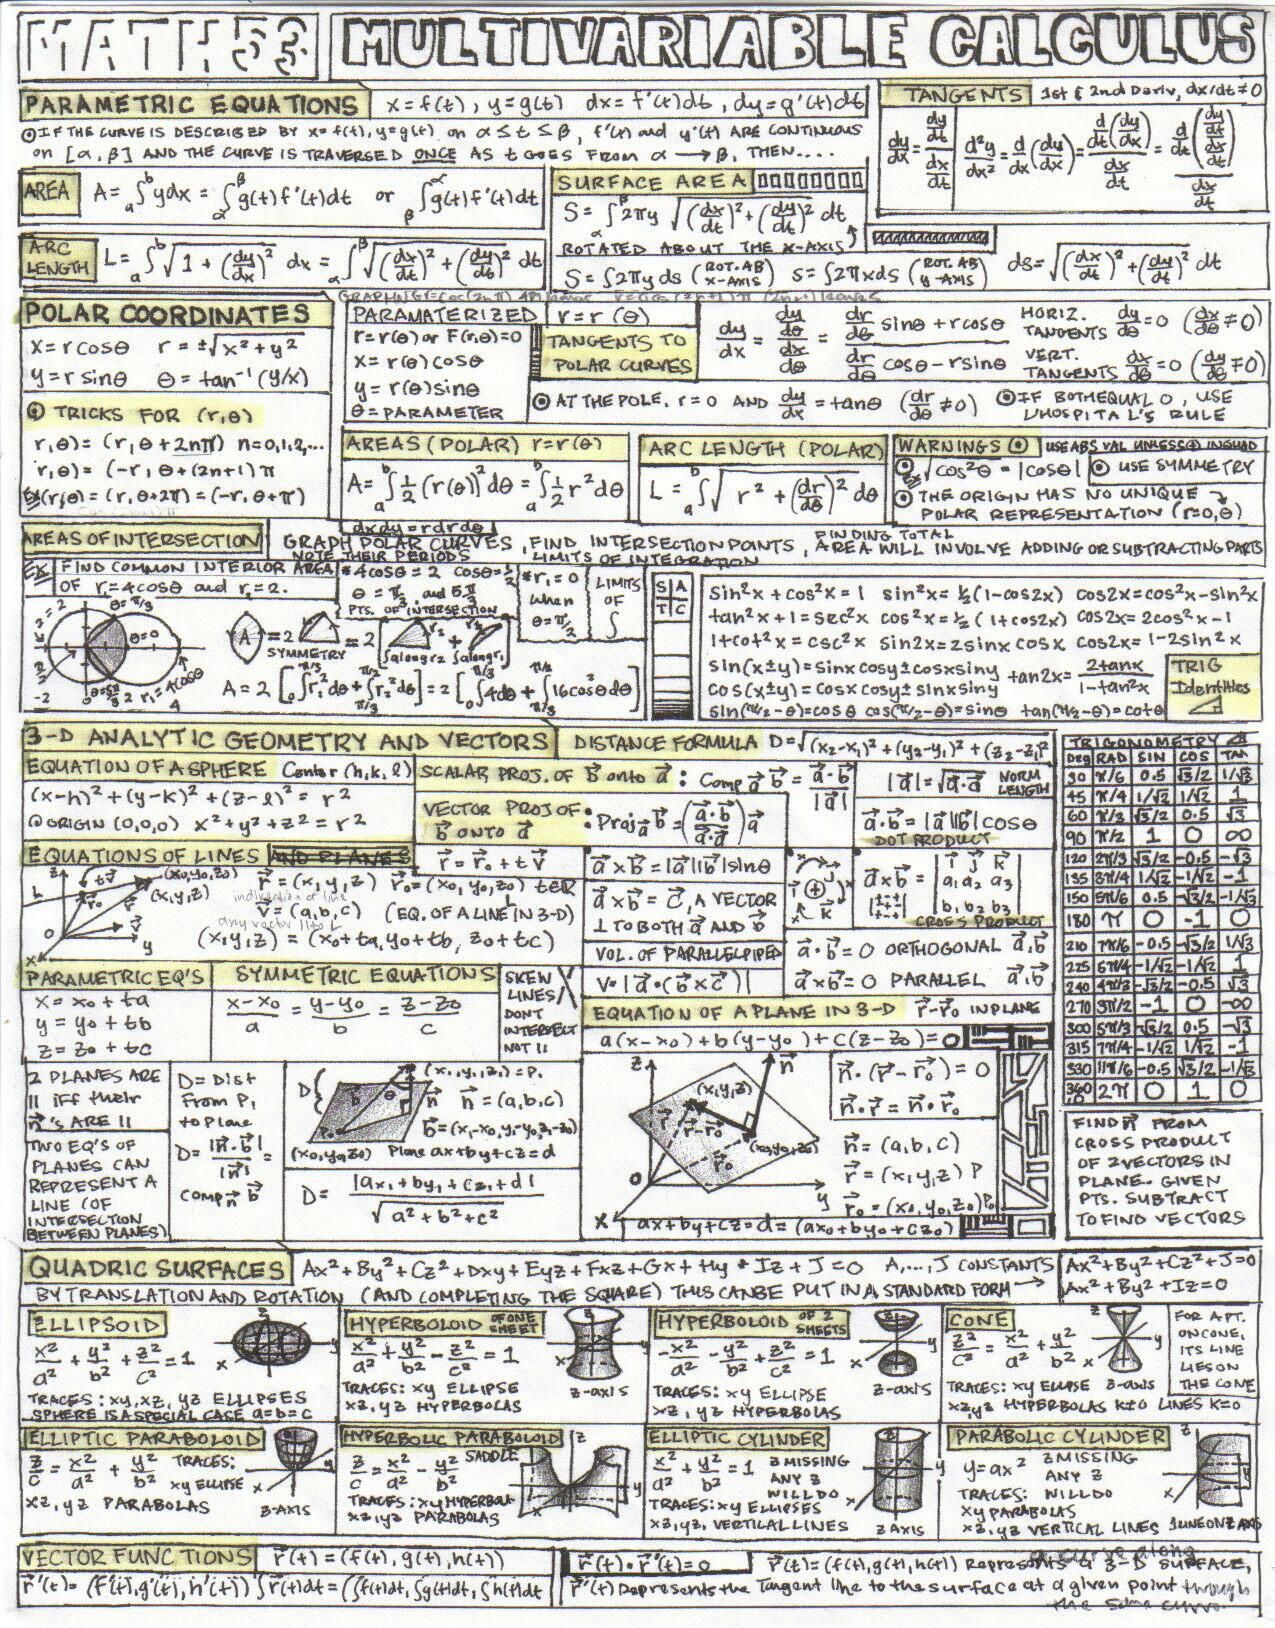 MATH 53 MULTIVARIABLE CALCULUS
PARAMETRIC EQUATIONS x=f(t), y=g(t) dx=f'(t)dt, dy=g'(t)dt
⊙IF THE CURVE IS DESCRIBED BY x=f(t), y=g(t) on α≤t≤β, f'(t) and g'(t) ARE CONTINUOUS
on [α,β] AND THE CURVE IS TRAVERSED ONCE AS t GOES FROM α→β, THEN....
TANGENTS 1st & 2nd Deriv, dx/dt≠0
dy/dx = (dy/dt)/(dx/dt) d²y/dx² = d/dx(dy/dx) = (d/dt(dy/dx))/(dx/dt) = (d/dt((dy/dt)/(dx/dt)))/(dx/dt)
AREA A = a∫b ydx = α∫β g(t)f'(t)dt or β∫α g(t)f'(t)dt
SURFACE AREA
S = α∫β 2πy √((dx/dt)²+(dy/dt)²) dt
ROTATED ABOUT THE X-AXIS
S=∫2πyds (ROT. AB X-AXIS) S=∫2πxds (ROT. AB Y-AXIS) ds=√((dx/dt)²+(dy/dt)²) dt
ARC LENGTH L = a∫b √(1+(dy/dx)²) dx = α∫β √((dx/dt)²+(dy/dt)²) dt
POLAR COORDINATES
x=rcosθ r=±√(x²+y²)
y=rsinθ θ=tan⁻¹(y/x)
⊙ TRICKS FOR (r,θ)
r,θ)=(r,θ+2nπ) n=0,1,2,...
r,θ)=(-r,θ+(2n+1)π
Ex(r,θ)=(r,θ+2π)=(-r,θ+π)
PARAMATERIZED
r=r(θ) or F(r,θ)=0
x=r(θ)cosθ
y=r(θ)sinθ
θ=PARAMETER
r=r(θ)
TANGENTS TO POLAR CURVES
dy/dx = (dy/dθ)/(dx/dθ) = (dr/dθ sinθ+rcosθ)/(dr/dθ cosθ-rsinθ)
HORIZ. TANGENTS dy/dθ=0 (dx/dθ≠0)
VERT. TANGENTS dx/dθ=0 (dy/dθ≠0)
⊙AT THE POLE, r=0 AND dy/dx=tanθ (dr/dθ≠0) ⊙IF BOTH EQUAL 0, USE L'HOSPITAL'S RULE
AREAS (POLAR) r=r(θ)
A= a∫b ½(r(θ))²dθ = a∫b ½r²dθ
dxdy=rdrdθ
ARC LENGTH (POLAR)
L= a∫b √(r²+(dr/dθ)²) dθ
WARNINGS ⊙ USE ABS VAL UNLESS ⊕ IN QUAD
⊙Ex √cos²θ=|cosθ| ⊙ USE SYMMETRY
⊙ THE ORIGIN HAS NO UNIQUE
POLAR REPRESENTATION (r=0,θ)
AREAS OF INTERSECTION GRAPH POLAR CURVES, FIND INTERSECTION POINTS, FINDING TOTAL AREA WILL INVOLVE ADDING OR SUBTRACTING PARTS
NOTE THEIR PERIODS LIMITS OF INTEGRATION
EX FIND COMMON INTERIOR AREA
OF r₁=4cosθ and r₂=2.
*4cosθ=2 cosθ=½
θ=π/3 and 5π/3
PTS. OF INTERSECTION
*r₁=0
when
θ=π/2
LIMITS
OF
∫
θ=π/3 θ=0 θ=5π/3 r₁=4cosθ r₂=2
A =2 SYMMETRY =2 ∫along r₂ + ∫along r₁
A=2[0∫π/3 r₂²dθ+π/3∫π/2 r₁²dθ]=2[0∫π/3 4dθ+π/3∫π/2 16cos²θdθ]
S A
T C
sin²x+cos²x=1 sin²x=½(1-cos2x) cos2x=cos²x-sin²x
tan²x+1=sec²x cos²x=½(1+cos2x) cos2x=2cos²x-1
1+cot²x=csc²x sin2x=2sinxcosx cos2x=1-2sin²x
sin(x±y)=sinxcosy±cosxsiny tan2x=2tanx/(1-tan²x)
cos(x±y)=cosxcosy±sinxsiny
sin(π/2-θ)=cosθ cos(π/2-θ)=sinθ tan(π/2-θ)=cotθ
TRIG
Identities
3-D ANALYTIC GEOMETRY AND VECTORS DISTANCE FORMULA D=√((x₂-x₁)²+(y₂-y₁)²+(z₂-z₁)²
EQUATION OF A SPHERE Center (h,k,l)
(x-h)²+(y-k)²+(z-l)²=r²
@ORIGIN (0,0,0) x²+y²+z²=r²
SCALAR PROJ. OF b⃗ onto a⃗: Comp a⃗ b⃗ = a⃗·b⃗/|a⃗|
|a⃗|=√(a⃗·a⃗) NORM LENGTH
VECTOR PROJ OF b⃗ ONTO a⃗ : Proj a⃗ b⃗=(a⃗·b⃗/a⃗·a⃗)a⃗
a⃗·b⃗=|a⃗||b⃗|cosθ
DOT PRODUCT
EQUATIONS OF LINES AND PLANES
r⃗=r⃗₀+tv⃗
r⃗=(x,y,z) r⃗₀=(x₀,y₀,z₀) t∈R
v⃗=(a,b,c) (EQ. OF A LINE L IN 3-D)
any vector || to L
(x,y,z)=(x₀+ta,y₀+tb,z₀+tc)
(x₀,y₀,z₀)
(x,y,z)
a⃗×b⃗=|a⃗||b⃗|sinθ
a⃗×b⃗=c⃗, A VECTOR
⊥ TO BOTH a⃗ AND b⃗
VOL. OF PARALLELPIPED
V=|a⃗·(b⃗×c⃗)|
a⃗×b⃗= |i⃗ j⃗ k⃗|
|a₁ a₂ a₃|
|b₁ b₂ b₃|
CROSS PRODUCT
a⃗·b⃗=0 ORTHOGONAL a⃗,b⃗
a⃗×b⃗=0 PARALLEL a⃗,b⃗
PARAMETRIC EQ'S
x=x₀+ta
y=y₀+tb
z=z₀+tc
SYMMETRIC EQUATIONS
(x-x₀)/a=(y-y₀)/b=(z-z₀)/c
SKEW
LINES
DONT
INTERSECT
NOT ||
EQUATION OF A PLANE IN 3-D r⃗-r⃗₀ IN PLANE
a(x-x₀)+b(y-y₀)+c(z-z₀)=0
2 PLANES ARE
|| iff their
n⃗'s ARE ||
TWO EQ'S OF
PLANES CAN
REPRESENT A
LINE (OF
INTERSECTION
BETWEEN PLANES)
D=Dist
From P₁
to Plane
D=|n⃗·b⃗|/|n⃗|=
Comp n⃗ b⃗
D (x₁,y₁,z₁)=P₁
n⃗ n⃗=(a,b,c)
b⃗=(x₁-x₀,y₁-y₀,z₁-z₀)
(x₀,y₀,z₀) Plane ax+by+cz=d
D=|ax₁+by₁+cz₁+d|/√(a²+b²+c²)
n⃗·(r⃗-r⃗₀)=0
n⃗·r⃗=n⃗·r⃗₀
n⃗=(a,b,c)
r⃗=(x,y,z) P
r⃗₀=(x₀,y₀,z₀)P₀
(x,y,z)
(x₀,y₀,z₀)
r⃗-r⃗₀
ax+by+cz=d=(ax₀+by₀+cz₀)
TRIGONOMETRY
Deg RAD SIN COS TAN
30 π/6 0.5 √3/2 1/√3
45 π/4 1/√2 1/√2 1
60 π/3 √3/2 0.5 √3
90 π/2 1 0 ∞
120 2π/3 √3/2 -0.5 -√3
135 3π/4 1/√2 -1/√2 -1
150 5π/6 0.5 -√3/2 -1/√3
180 π 0 -1 0
210 7π/6 -0.5 -√3/2 1/√3
225 5π/4 -1/√2 -1/√2 1
240 4π/3 -√3/2 -0.5 √3
270 3π/2 -1 0 -∞
300 5π/3 -√3/2 0.5 -√3
315 7π/4 -1/√2 1/√2 -1
330 11π/6 -0.5 √3/2 -1/√3
360 2π 0 1 0
FIND n⃗ FROM
CROSS PRODUCT
OF 2 VECTORS IN
PLANE. GIVEN
PTS. SUBTRACT
TO FIND VECTORS
QUADRIC SURFACES Ax²+By²+Cz²+Dxy+Eyz+Fxz+Gx+Hy+Iz+J=0 A,...,J CONSTANTS
BY TRANSLATION AND ROTATION (AND COMPLETING THE SQUARE) THIS CAN BE PUT IN A STANDARD FORM →
Ax²+By²+Cz²+J=0
Ax²+By²+Iz=0
ELLIPSOID
x²/a²+y²/b²+z²/c²=1
TRACES: xy,xz,yz ELLIPSES
SPHERE IS A SPECIAL CASE a=b=c
HYPERBOLOID OF ONE SHEET
x²/a²+y²/b²-z²/c²=1
TRACES: xy ELLIPSE
xz, yz HYPERBOLAS
z-axis
HYPERBOLOID OF 2 SHEETS
-x²/a²-y²/b²+z²/c²=1
TRACES: xy ELLIPSE
xz, yz HYPERBOLAS
z-axis
CONE
z²/c²=x²/a²+y²/b²
TRACES: xy ELLIPSE z-axis
xz,yz HYPERBOLAS k≠0 LINES k=0
FOR A PT.
ON CONE,
ITS LINE
LIES ON
THE CONE
ELLIPTIC PARABOLOID
z/c=x²/a²+y²/b² TRACES:
xy ELLIPSE
xz,yz PARABOLAS z-AXIS
HYPERBOLIC PARABOLOID
z/c=x²/a²-y²/b² SADDLE
TRACES: xy HYPERBOLA
xz,yz PARABOLAS
ELLIPTIC CYLINDER
x²/a²+y²/b²=1 z MISSING
ANY z
WILL DO
TRACES: xy ELLIPSES
xz,yz, VERTICAL LINES z AXIS
PARABOLIC CYLINDER
y=ax² z MISSING
ANY z
TRACES: WILL DO
xy PARABOLAS
xz,yz VERTICAL LINES 1 LINE ON z AXIS
VECTOR FUNCTIONS r⃗(t)=(f(t),g(t),h(t))
r⃗'(t)=(f'(t),g'(t),h'(t)) ∫r⃗(t)dt=(∫f(t)dt,∫g(t)dt,∫h(t)dt
r⃗(t)·r⃗'(t)=0 r⃗(t)=(f(t),g(t),h(t)) Represents a 3-D SURFACE,
r⃗'(t) Represents the Tangent line to the surface at a given point through
the same curve.